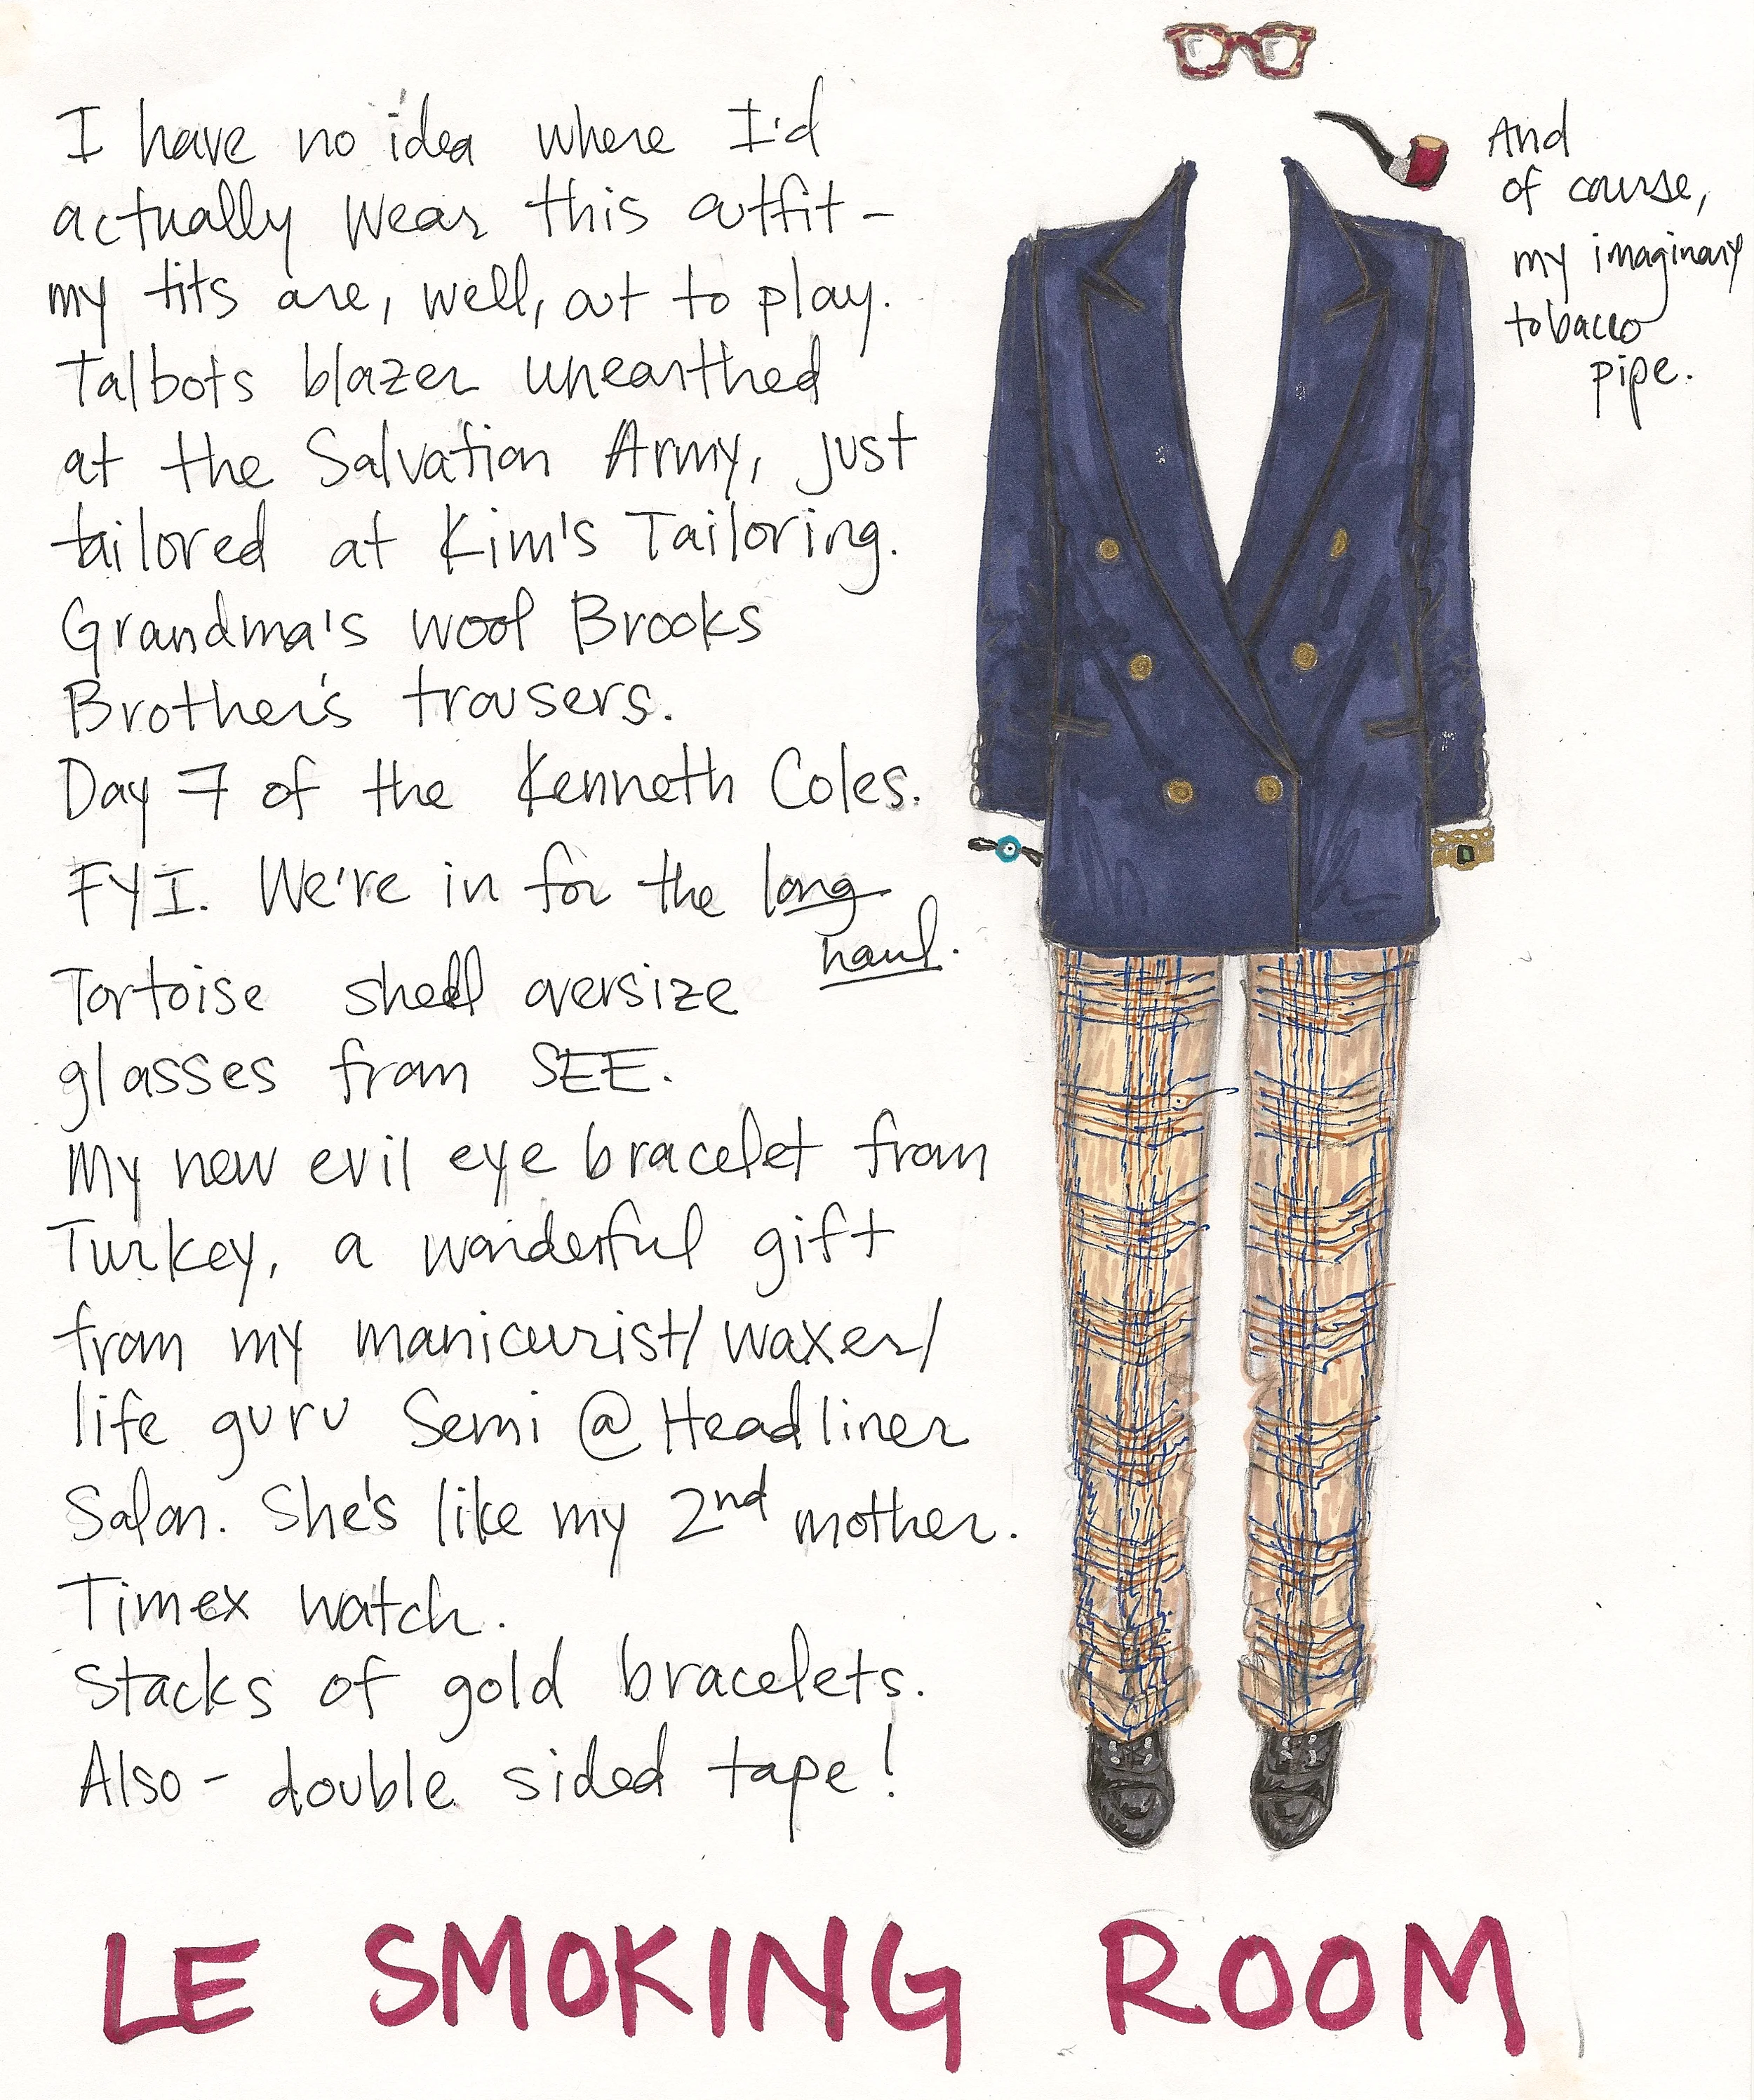 I have no idea where I'd
actually wear this outfit -
my tits are, well, out to play.
Talbots blazer unearthed
at the Salvation Army, just
tailored at Kim's Tailoring.
Grandma's wool Brooks
Brother's trousers.
Day 7 of the Kenneth Coles.
FYI. We're in for the long
haul.
Tortoise shell oversize
glasses from SEE.
My new evil eye bracelet from
Turkey, a wonderful gift
from my manicurist/waxer/
life guru Semi @ Headliner
Salon. She's like my 2nd mother.
Timex watch.
Stacks of gold bracelets.
Also - double sided tape!
And
of course,
my imaginary
tobacco
pipe.
LE SMOKING ROOM